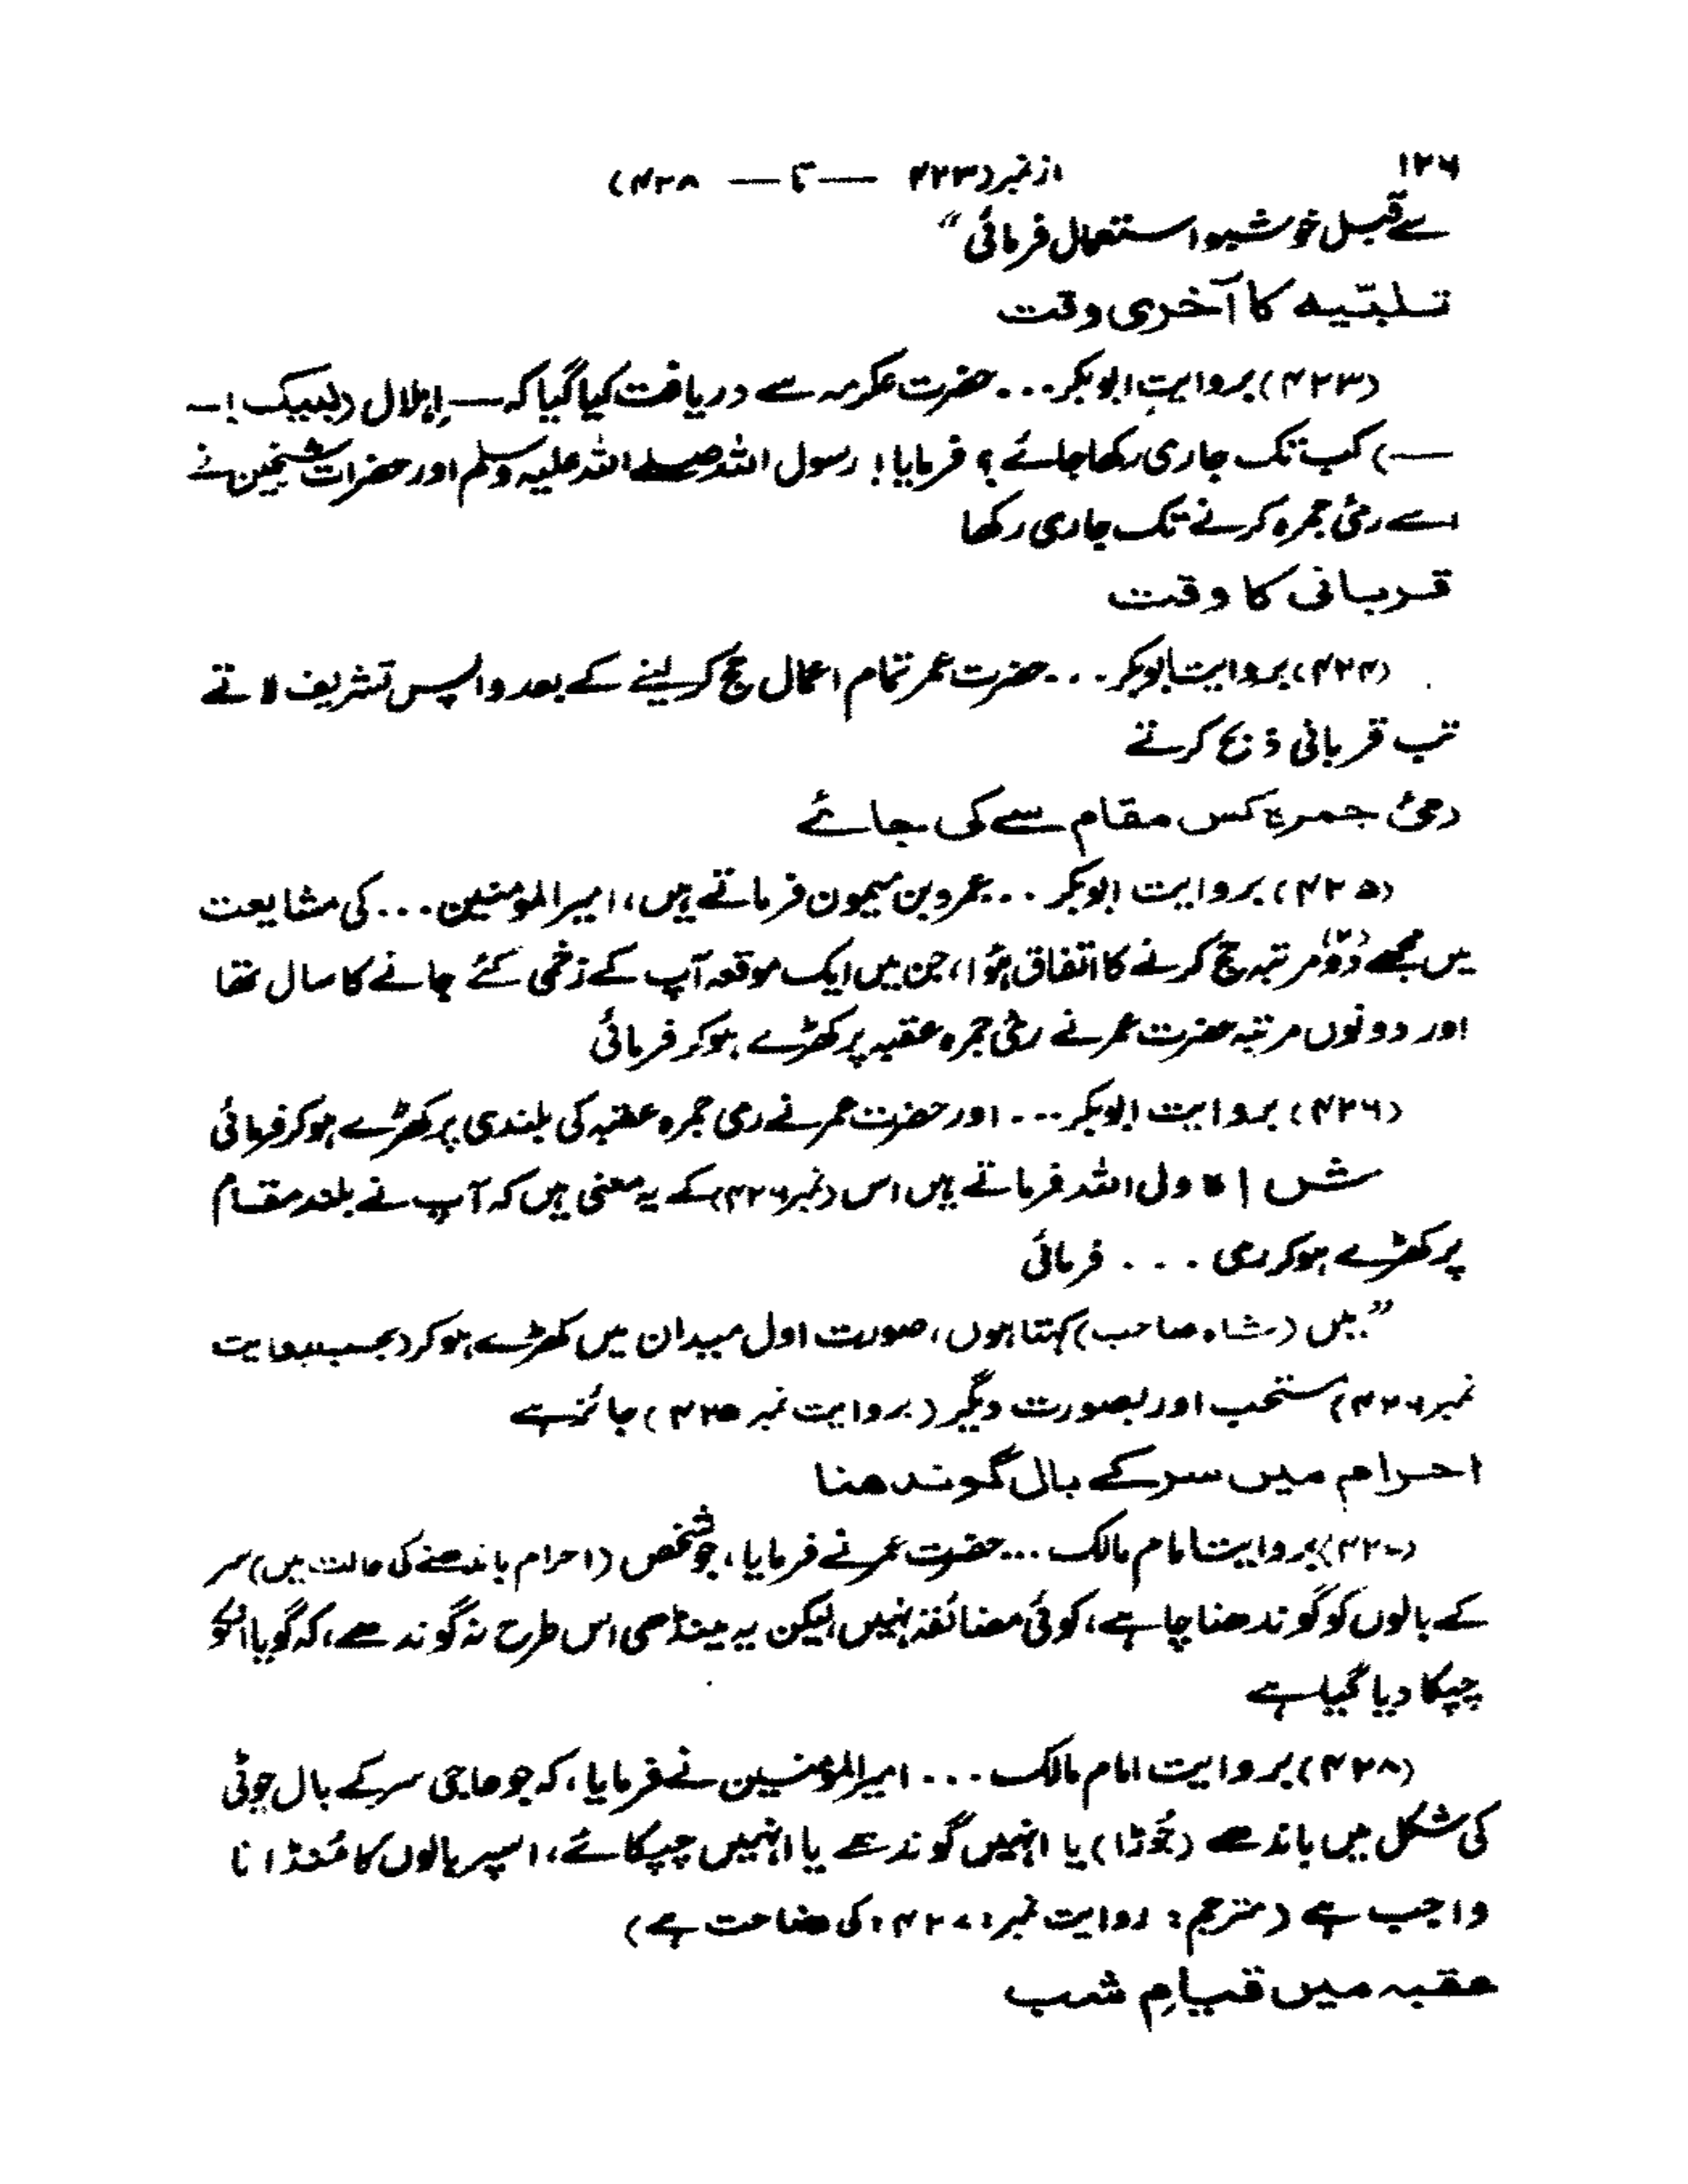 ۱۲۶
از نمبر (۴۲۳ — تا — ۴۲۸)
سے قبل خوشبو استعمال فرمائی"
تلبیّہ کا آخری وقت
(۴۲۳) بروایتِ ابوبکر... حضرت عکرمہ سے دریافت کیا گیا کہ — اِہلال (لبیک! —
—) کب تک جاری رکھا جائے؟ فرمایا! رسول اللہ صلے اللہ علیہ وسلم اور حضرات شیخین نے
اسے رمئ جمرہ کرنے تک جاری رکھا
قربانی کا وقت
(۴۲۴) بروایت ابوبکر... حضرت عمر تمام اعمال حج کر لینے کے بعد واپس تشریف لاتے
تب قربانی ذبح کرتے
رمئ جمرہ کس مقام سے کی جائے
(۴۲۵) بروایت ابوبکر... عمرو بن میمون فرماتے ہیں، امیرالمومنین... کی مشایعت
میں مجھے دوّ (۲) مرتبہ حج کرنے کا اتفاق ہؤا، جن میں ایک موقعہ آپ کے زخمی کئے جانے کا سال تھا
اور دونوں مرتبہ حضرت عمر نے رمئ جمرہ عقبہ پر کھڑے ہو کر فرمائی
(۴۲۶) بروایت ابوبکر... اور حضرت عمر نے رمی جمرہ عقبہ کی بلندی پر کھڑے ہو کر فرمائی
شاہ ولی اللہ فرماتے ہیں اس (نمبر ۴۲۶) کے یہ معنی ہیں کہ آپ نے بلند مقام
پر کھڑے ہو کر رمی ... فرمائی
"میں (شاہ صاحب) کہتا ہوں، صورت اول میدان میں کھڑے ہو کر (بحسب روایت
نمبر ۴۲۶) مستحب اور بصورت دیگر (بروایت نمبر ۴۲۵) جائز ہے
احرام میں سر کے بال گوندھنا
(۴۲۷) بروایت امام مالک... حضرت عمر نے فرمایا، جو شخص (احرام باندھنے کی حالت میں) سر
کے بالوں کو گوندھنا چاہے، کوئی مضائقہ نہیں لیکن یہ مینڈھی اس طرح نہ گوندھے، کہ گویا انکو
چپکا دیا گیا ہے
(۴۲۸) بروایت امام مالک... امیرالمومنین نے فرمایا، کہ جو حاجی سر کے بال چوٹی
کی شکل میں باندھے (جُوڑا) یا انہیں گوندھے یا انہیں چپکائے، اسپر بالوں کا مُنڈانا
واجب ہے (مترجم: روایت نمبر: ۴۲۷: کی وضاحت ہے)
عقبہ میں قیامِ شب